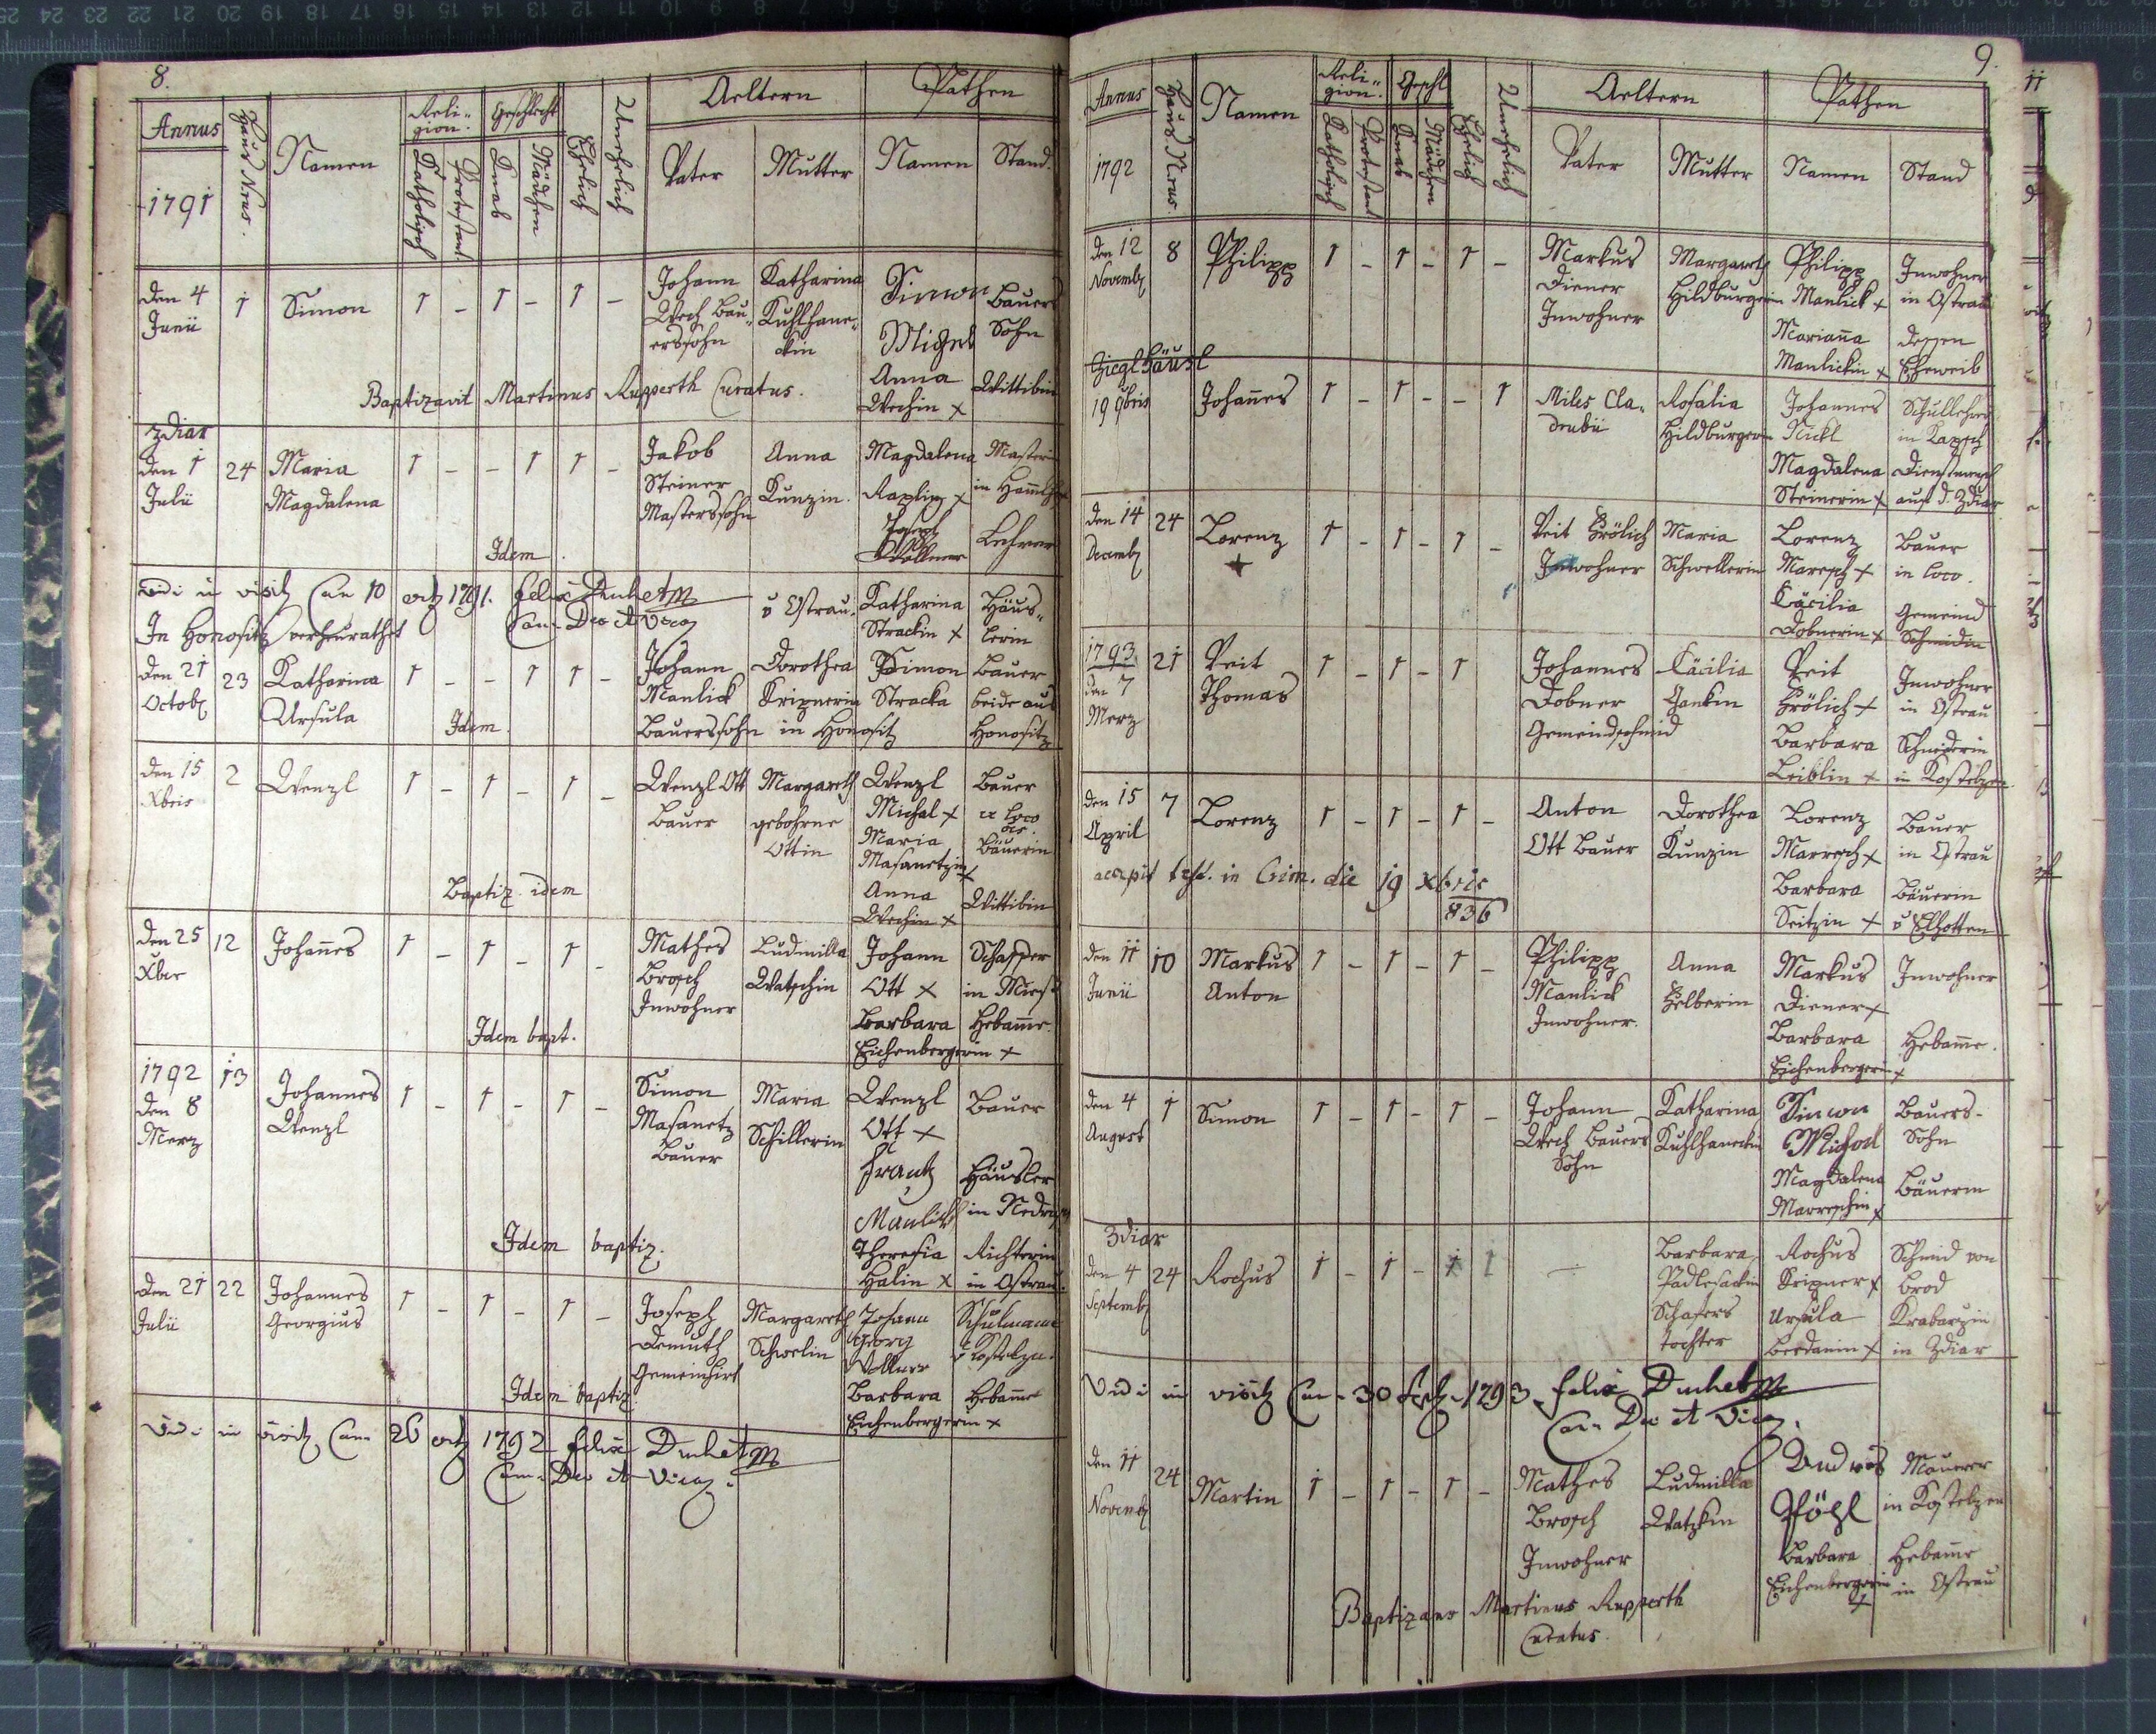 8.
Annus
1791
Haus Nrus.
Namen
Reli-
gion.
Katholisch
Protestant
Geschlecht
Knab
Mädchen
Ehelich
Unehelich
Aeltern
Vater
Mutter
Pathen
Namen
Stand.
den 4
Junii
1
Simon
1 - 1 - 1 -
Johann
Wech Bau-
erssohn
Katharina
Kuhlhane-
ckin
Simon
Bauers
Sohn
Anna
Wechin x
Wittibin
Baptizavit Martinus Rupperth Curatus.
Zdiar
den 1
Julii
24
Maria
Magdalena
1 - - 1 1 -
Jakob
Steiner
Masterssohn
Anna
Kunzin.
Magdalena
Masterin
Joseph
Wollner
Lehrer
Idem.
Vidi in visit Can 10 1791. Felix Duchet
Can. Dec et Vica
v Ostrau.
Katharina
Strackin x
Häus-
lerin
In Honositz verheurathet
den 21
Octob
23
Katharina
Ursula
1 - - 1 1 -
Johann
Manlick
Bauerssohn in Honositz
Dorothea
Kripnerin
Simon
Stracka
Bauer
beide aus
Honositz
Idem.
den 15
Xbris
2
Wenzl
1 - 1 - 1 -
Wenzl Ott
Bauer
Margareth
gebohrne
Ottin
Wenzl
Michal x
Maria
Masanetzin x
Anna
Wechin x
Bauer
ex loco
Bäuerin
Wittibin
Baptiz. idem
den 25
Xber
12
Johannes
1 - 1 - 1 -
Mathes
Brosch
Inwohner
Ludmilla
Watschin
Johann
Ott x
Barbara
Eichenbergerin x
Schaffer
in
Hebamme.
Idem bapt.
1792
den 8
Merz
13
Johannes
Wenzl
1 - 1 - 1 -
Simon
Masanetz
Bauer
Maria
Schillerin
Wenzl
Ott x
Frantz
Manlick
Theresia
Halin x
Bauer
Häusler
in
Richterin
in Ostrau.
Idem baptiz.
den 21
Julii
22
Johannes
Georgius
1 - 1 - 1 -
Joseph
Demuth
Gemeinhirt
Margareth
Schwelin
Johann
Georg
Wollner
Barbara
Eichenbergerin x
Schulmann
v Kostelzen.
Hebamme
Idem baptiz.
Vidi in visit Can 26 1792 Felix Duchet
Can. Dec et Vica
9.
Annus
1792
Haus Nrus.
Namen
Reli-
gion.
Katholisch
Protestant
Geschl
Knab
Mädchen
Ehelich
Unehelich
Aeltern
Vater
Mutter
Pathen
Namen
Stand
den 12
Novemb
8
Philipp
1 - 1 - 1 -
Markus
Diener
Inwohner
Margareth
Hildburgerin
Philipp
Manlick x
Marianna
Manlickin x
Inwohner
in Ostrau
dessen
Eheweib
Zieglhäusl
19 9bris
Johannes
1 - 1 - - 1
Miles Cla-
Rosalia
Hildburgerin
Johannes
Nickl
Magdalena
Steinerin x
Schullehrer
in
Dienstmensch
auf d. Zdiar
den 14
Decemb
24
Lorenz
+
1 - 1 - 1 -
Veit Frölich
Inwohner
Maria
Schwellerin
Lorenz
Maresch x
Cäcilia
Dobnerin x
Bauer
in loco.
Gemeind
Schmidin
1793
den 7
Merz
21
Veit
Thomas
1 - 1 - 1
Johannes
Dobner
Gemeindschmid
Cäcilia
Jankin
Veit
Frölich x
Barbara
Leiblin x
Inwohner
in Ostrau
Schneiderin
in Kostelzen
den 15
April
7
Lorenz
1 - 1 - 1 -
Anton
Ott Bauer
Dorothea
Kunzin
Lorenz
Marresch x
Barbara
Seitzin x
Bauer
in Ostrau
Bäuerin
v Elhotten
accepit test. in Crim. die 19 Xbris
836
den 11
Junii
10
Markus
Anton
1 - 1 - 1 -
Philipp
Manlick
Inwohner.
Anna
Helberin
Markus
Diener x
Barbara
Eichenbergerin x
Inwohner
Hebamme.
den 4
August
1
Simon
1 - 1 - 1 -
Johann
Wech Bauers
Sohn
Katharina
Kuhlhaneckin
Simon
Michal
Magdalena
Marreschin x
Bauers-
Sohn
Bäuerin
Zdiar
den 4
Septemb
24
Rochus
1 - 1 - 1 1
-
Barbara
Padlesackin
Schafers
tochter
Rochus
Kripner x
Ursula
Berdanin x
Schmid von
Brod
in Zdiar
Vidi in visit Can. 30 1793 Felix Duchet
Can. Dec et Vica.
den 11
Novemb
24
Martin
1 - 1 - 1 -
Mathes
Brosch
Inwohner
Ludmilla
Watzkin
Andreas
Pözl
Barbara
Eichenbergerin
x
Maurer
in Kostelzen
Hebamme
in Ostrau
Baptizans Martinus Rupperth
Curatus.